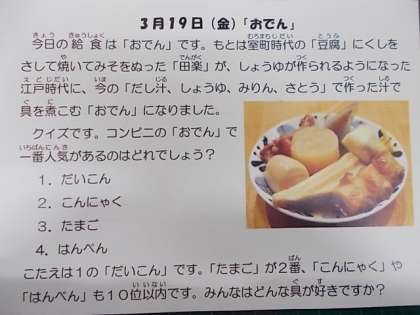 3月19日（金）「おでん」
今日の給食は「おでん」です。もとは室町時代の「豆腐」にくしを
さして焼いてみそをぬった「田楽」が、しょうゆが作られるようになった
江戸時代に、今の「だし汁、しょうゆ、みりん、さとう」で作った汁で
具を煮こむ「おでん」になりました。
クイズです。コンビニの「おでん」で
一番人気があるのはどれでしょう？
１．だいこん
２．こんにゃく
３．たまご
４．はんぺん
こたえは１の「だいこん」です。「たまご」が２番、「こんにゃく」や
「はんぺん」も１０位以内です。みんなはどんな具が好きですか？